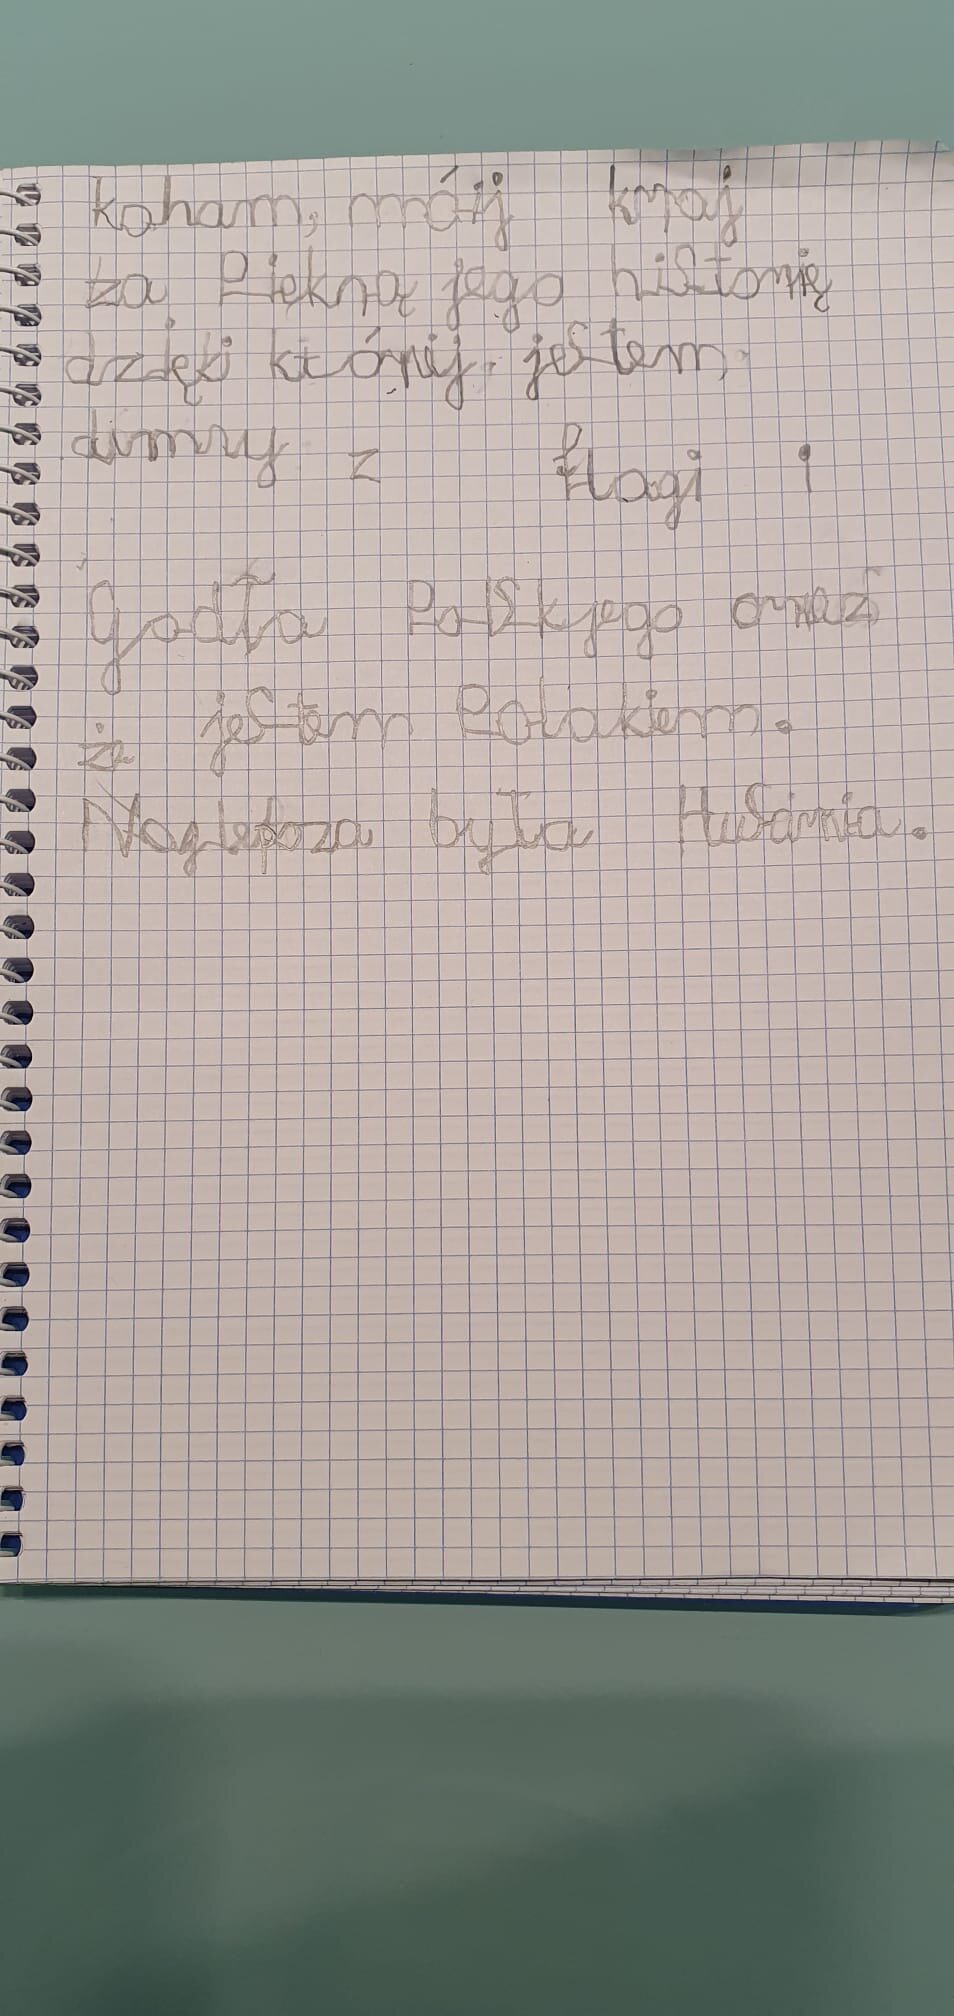 koham mój kraj
za Piekną jego histonię
dzięki któnij jestem
dumny z flagi i
godła Polskjego oraz
że jestem Polakiem.
Noglepsza była Husania.